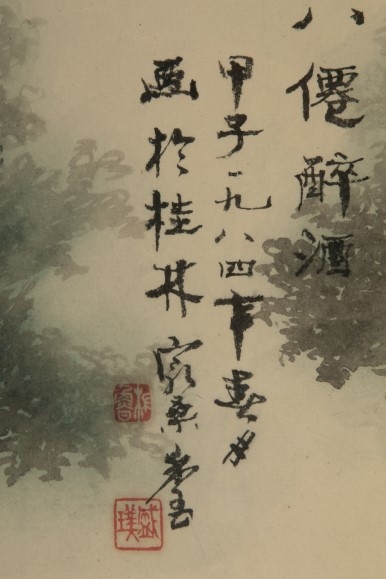 八僊醉酒
甲子一九八四年春月
画於桂林